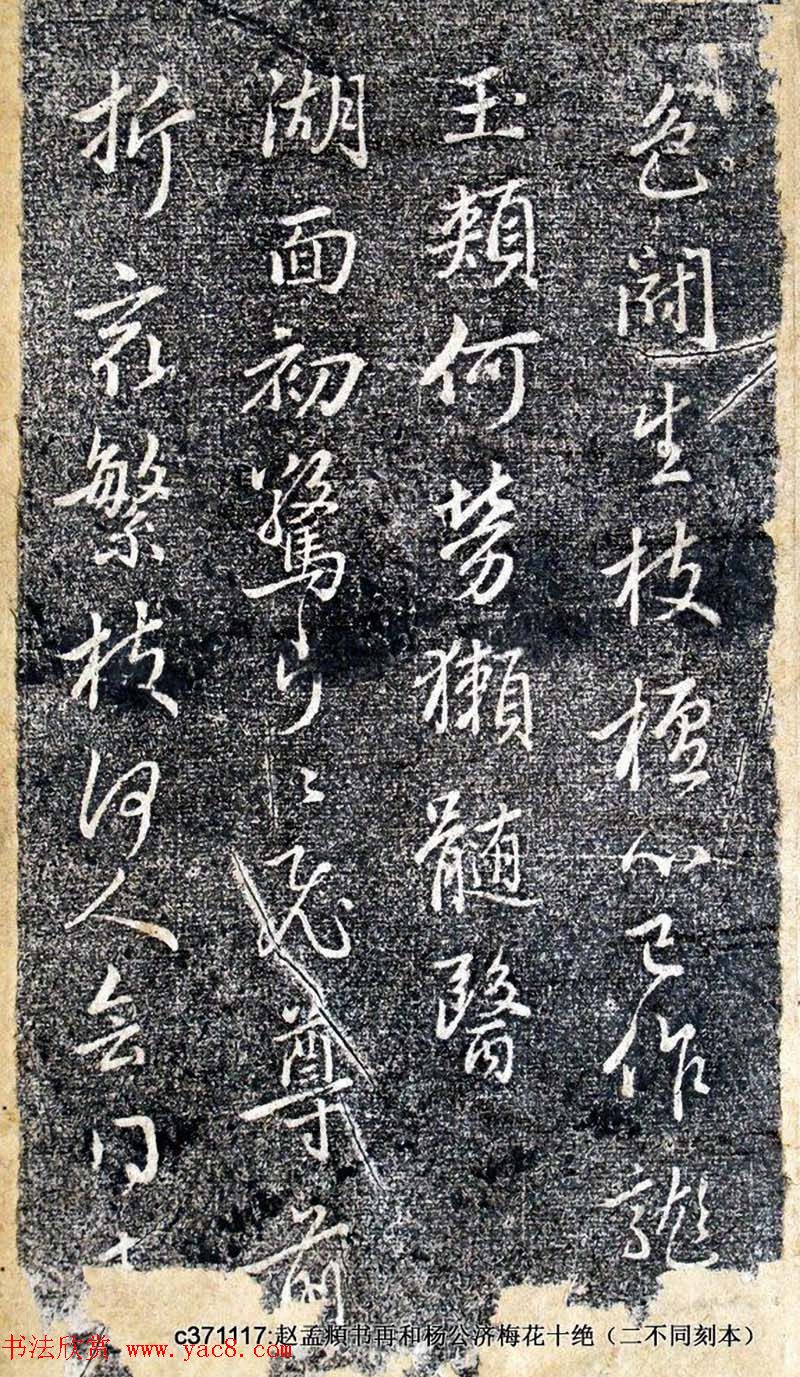 色鬭生枝檀心已作龍
玉頰何勞獺髓醫
湖面初驚片〻飛尊前
折冣繁枝何人會得
c371117:赵孟頫书再和杨公济梅花十绝（二不同刻本）
书法欣赏 www.yac8.com